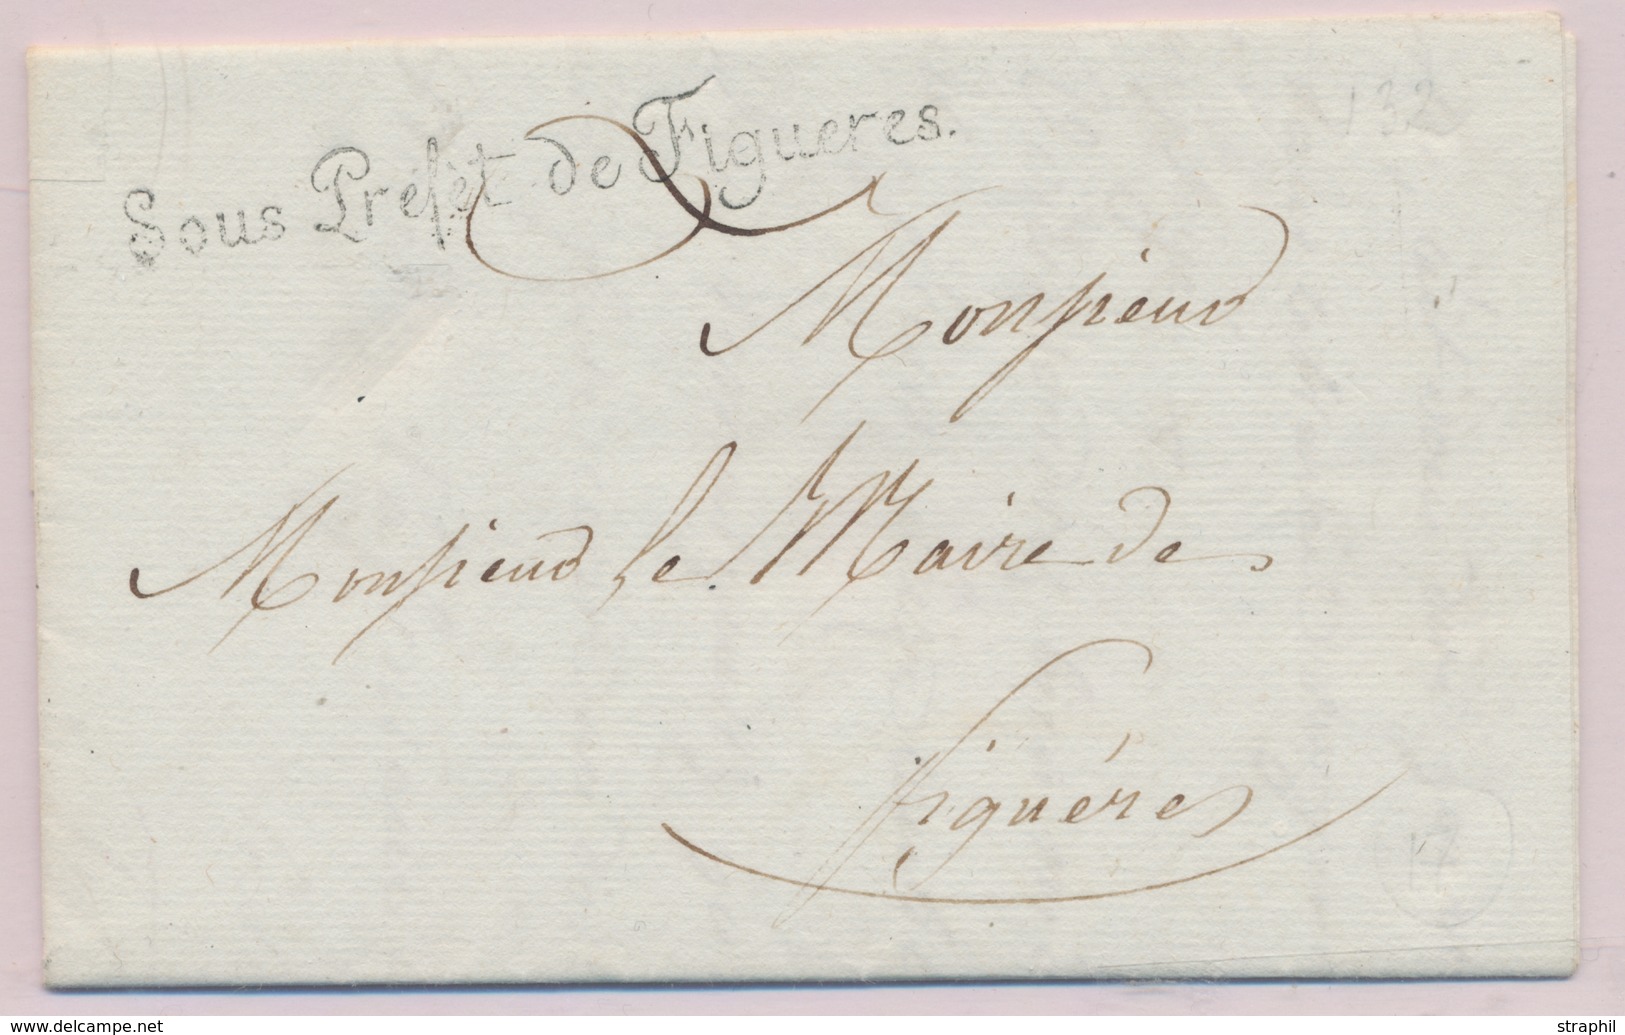 132
Sous Préfèt de Figueres.
Monsieur
Monsieur le Maire de
figuéres
17
www.delcampe.net
straphil